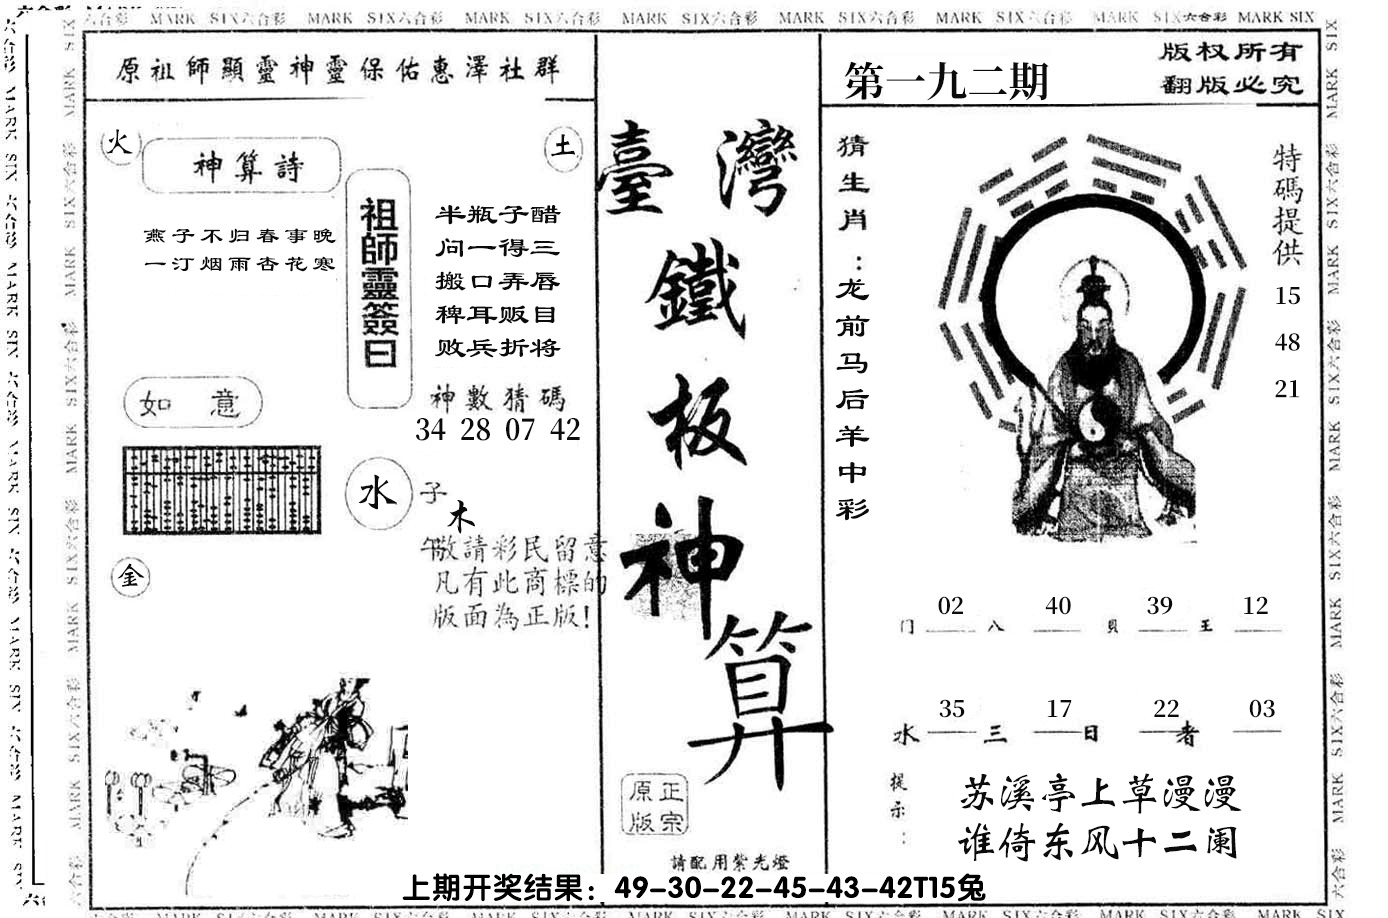 MARK SIX六合彩 MARK SIX六合彩 MARK SIX六合彩 MARK SIX六合彩 MARK SIX六合彩 MARK SIX六合彩 MARK SIX六合彩 MARK SIX
原祖師顯靈神靈保佑惠澤社群
火
神算詩
土
燕子不归春事晚
一汀烟雨杏花寒
祖師靈簽曰
半瓶子醋
问一得三
搬口弄唇
稗耳贩目
败兵折将
如意
神數猜碼
34 28 07 42
水
子
木
午
敬請彩民留意
凡有此商標的
版面為正版!
金
臺灣
鐵
板
神
算
原正
版宗
請配用紫光燈
第一九二期
版权所有
翻版必究
猜生肖:龙前马后羊中彩
特碼提供
15
48
21
02 40 39 12
门 八 貝 王
35 17 22 03
水 三 日 者
提示:
苏溪亭上草漫漫
谁倚东风十二阑
上期开奖结果：49-30-22-45-43-42T15兔